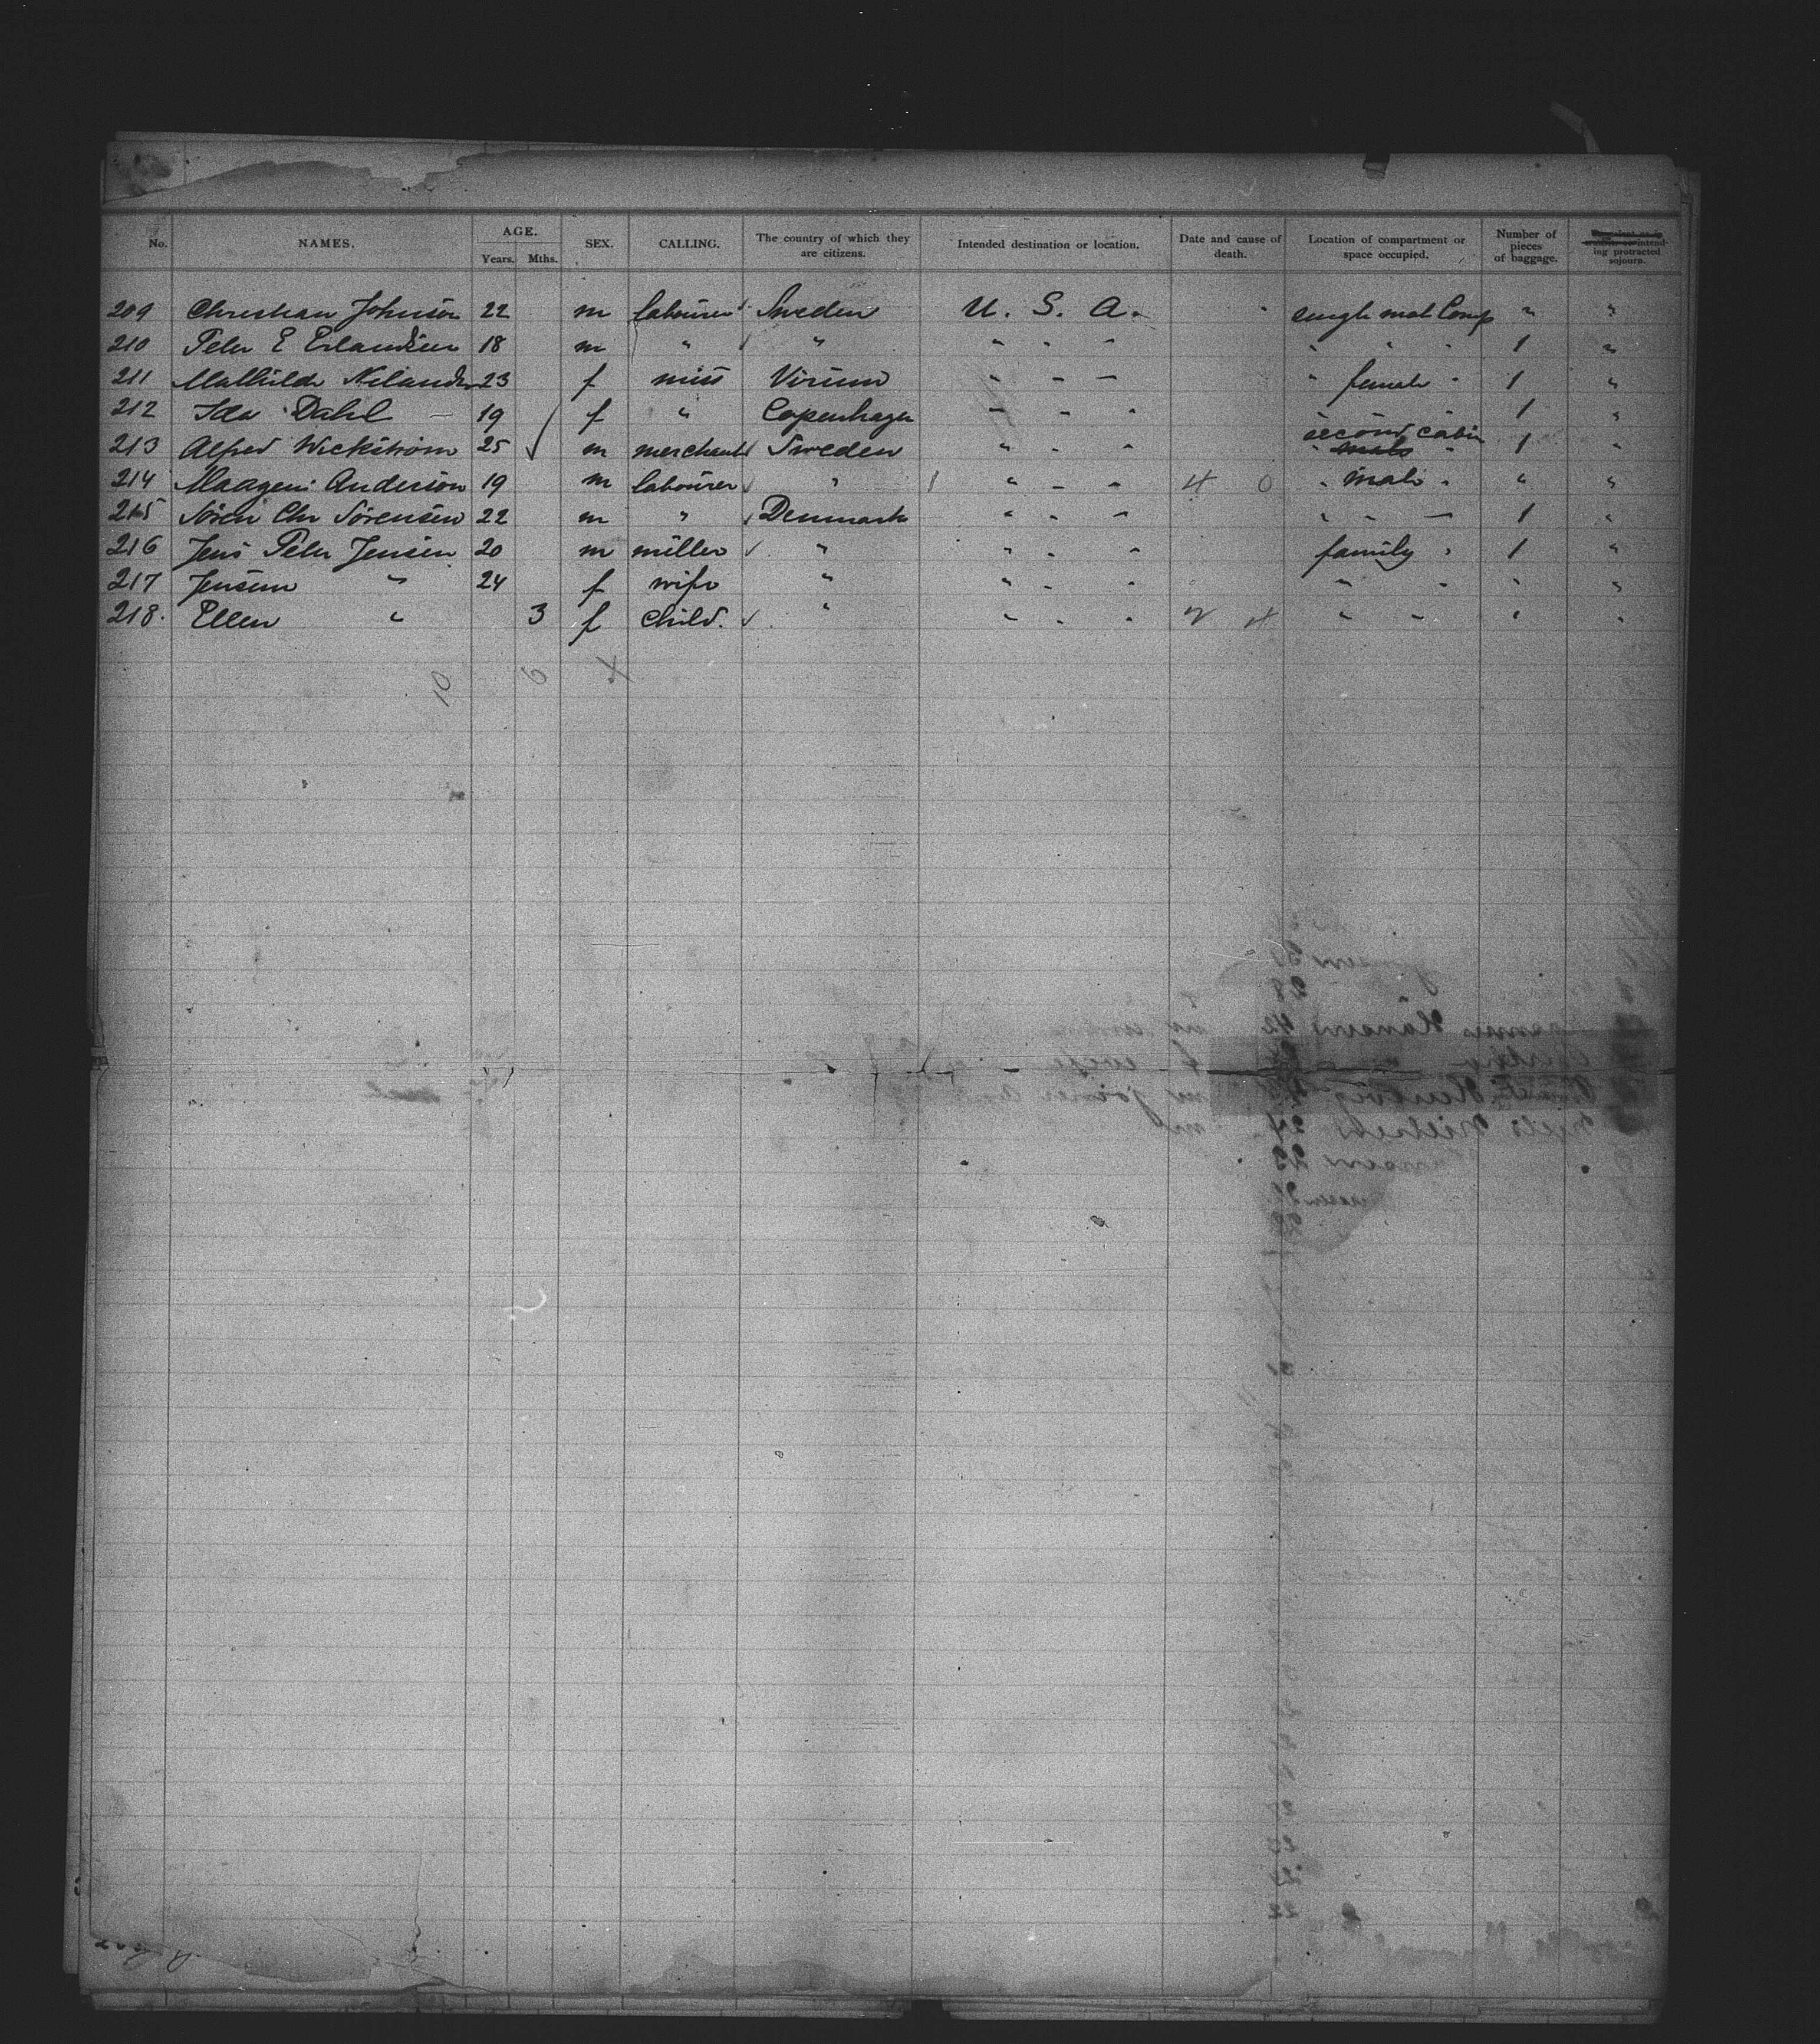 No. NAMES. AGE. Years. Mths. SEX. CALLING. The country of which they are citizens. Intended destination or location. Date and cause of death. Location of compartment or space occupied. Number of pieces of baggage. intending protracted sojourn.
209 Christian Johnson 22 m labourer Sweden U. S. A. single male Comp " "
210 Peter E Erlandsen 18 m " " " " " " " " 1 "
211 Mathilde Nilander 23 f miss Virum " " " " female " 1 "
212 Ida Dahl 19 f " Copenhagen " " " 1 "
213 Alfred Wickström 25 m merchant Sweden " " " second cabin " male " 1 "
214 Anderson 19 m labourer " " " " 4 0 " male " " "
215 Sören Chr Sörensen 22 m " Denmark " " " " " " 1 "
216 Jens Peter Jensen 20 m miller " " " " family " 1 "
217 " 24 f wife " " " " " " " "
218. Ellen " 3 f child. " " " " " " " "
10 6 4